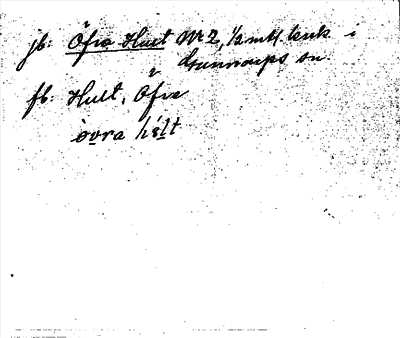 jb: Öfra Hult Nr 2, 1/2 mtl kruk i
Gunnarps sn.
fb: Hult, Öfre
òvra hílt